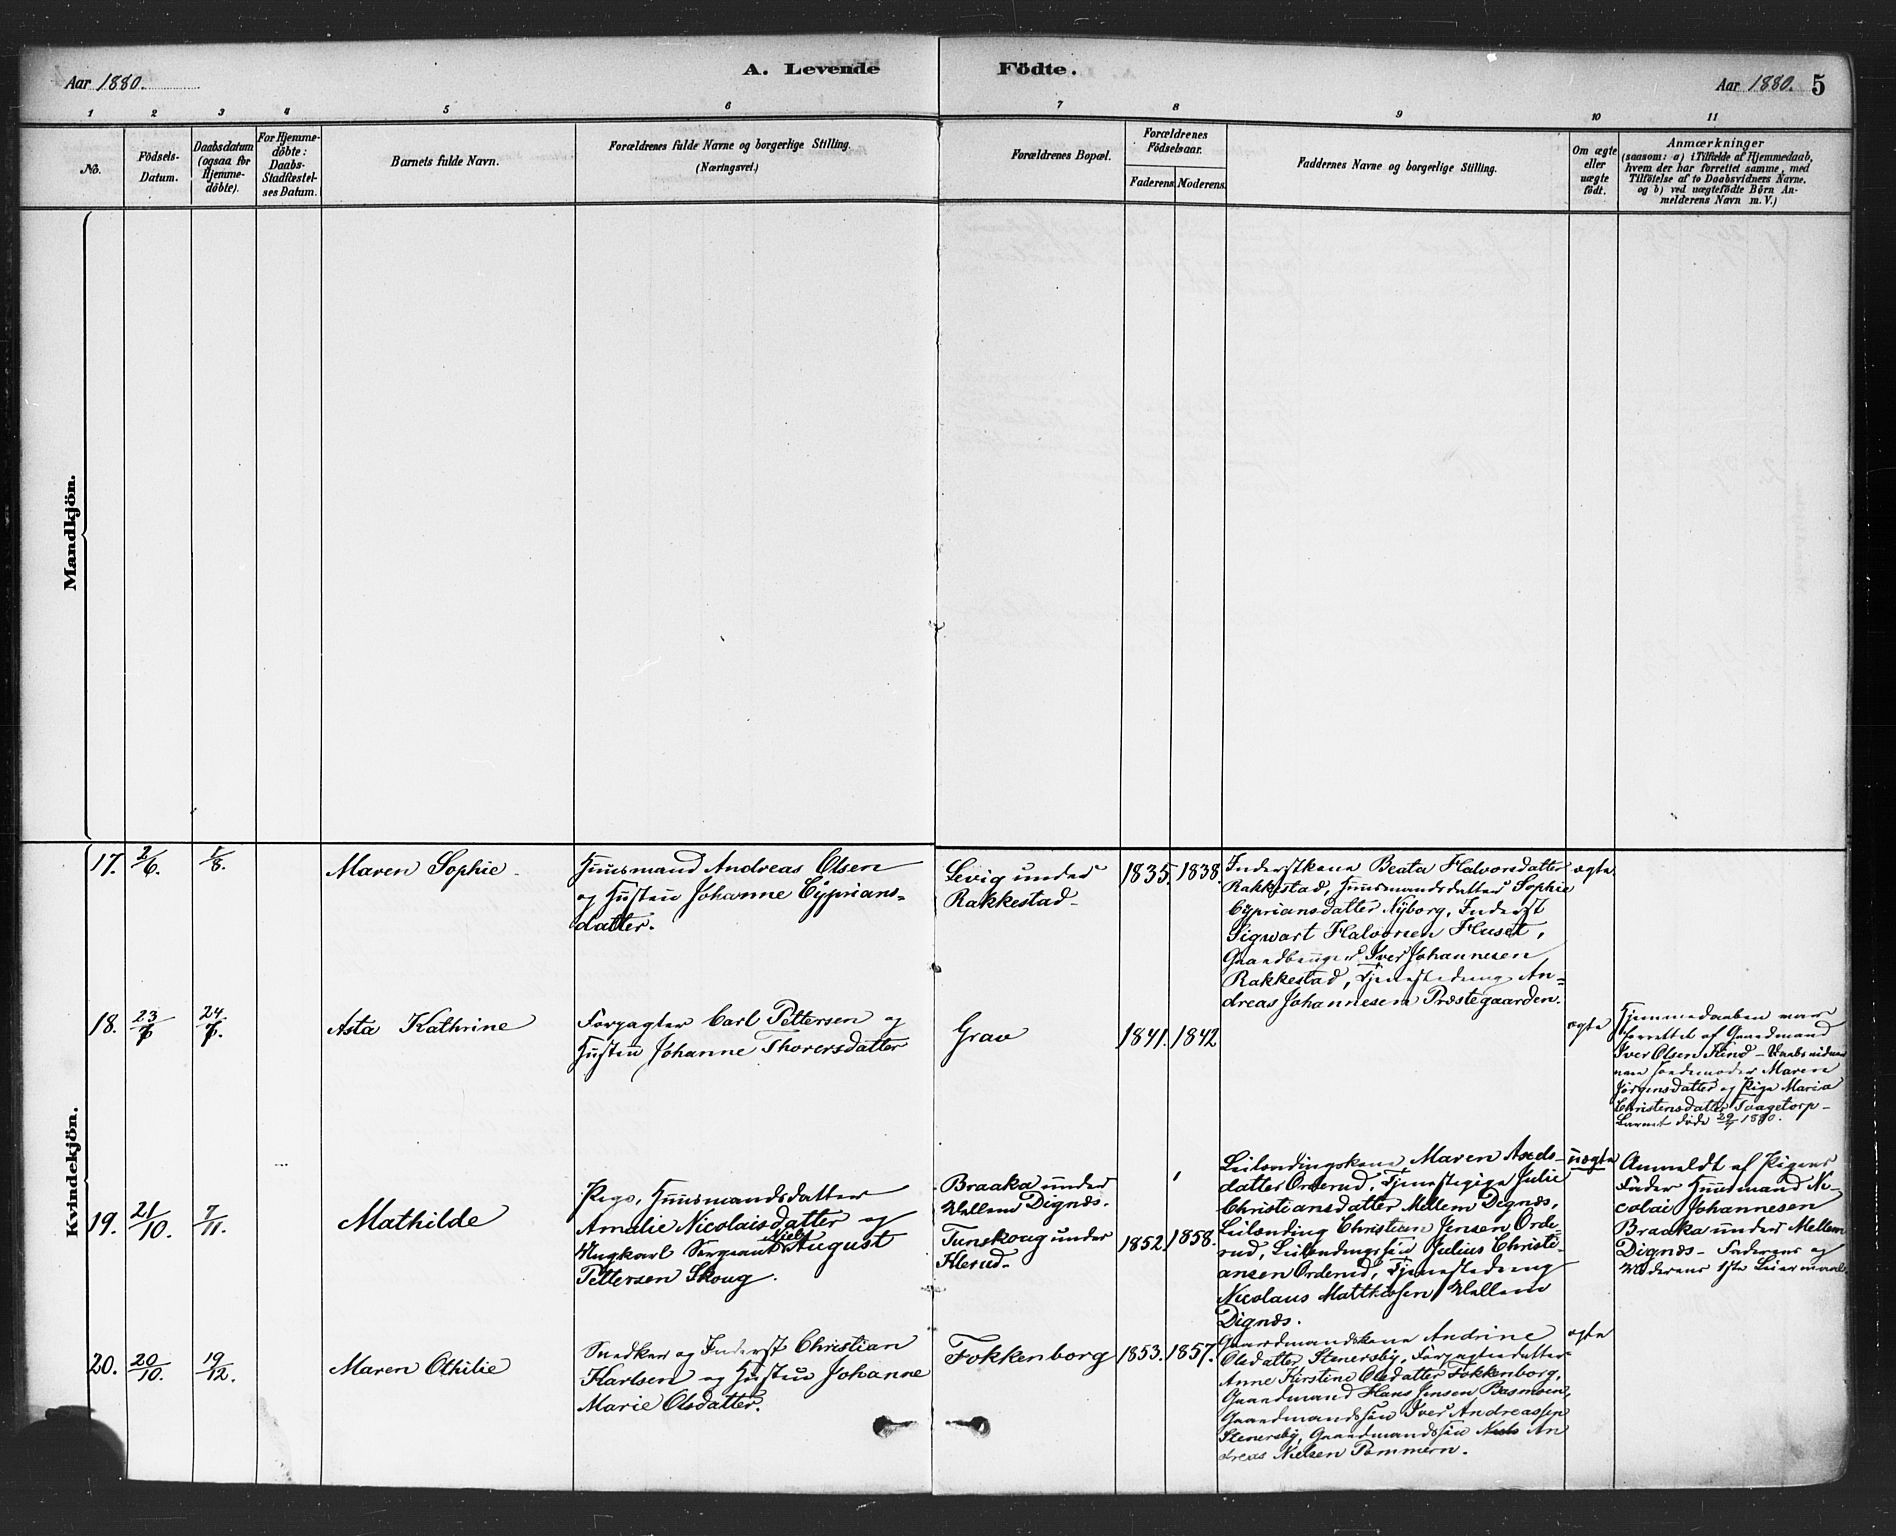 Aar 1880.
A. Levende Födte.
Aar 1880. 5
1 2 3 4 5 6 7 8 9 10 11
No.
Födsels-
Datum.
Daabsdatum
(ogsaa for
Hjemme-
döbte).
For Hjemme-
döbte:
Daabs-
Stadfæstel-
ses Datum.
Barnets fulde Navn.
Forældrenes fulde Navne og borgerlige Stilling.
(Næringsvei.)
Forældrenes Bopæl.
Forældrenes
Födselsaar.
Faderens. Moderens.
Faddernes Navne og borgerlige Stilling.
Om ægte
eller
uægte
födt.
Anmærkninger
(saasom: a) i Tilfælde af Hjemmedaab,
hvem der har forrettet samme, med
Tilföielse af to Daabsvidners Navne.
og b) ved uægtefödte Börn An-
melderens Navn m. V.)
Mandkjön.
Kvindekjön.
17.
2/6.
1/8.
Maren Sophie.
Huusmand Andreas Olsen
og Hustru Johanne Cyprians-
datter.
Levig under
Rakkestad
1835. 1838.
Inderstkone Beata Halvorsdatter
Rakkestad, Huusmandsdatter Sophie
Cypriansdatter Nyborg, Inderst
Sigwart Halvorsen Huset,
Gaardbruger Iver Johannesen
Rakkestad, Tjenestedreng An-
dreas Johannesen Præstegaarden.
ægte
18.
23/7
24/7.
Asta Kathrine
Forpagter Carl Pettersen og
Hustru Johanne Thorersdatter
Grav
1841. 1842
ægte
Hjemmedaaben var
forrettet af Gaardmand
Iver Olsen Kind - Daabsvidner
vare Jordemoder Maren
Jörgensdatter og Pige Maria
Christensdatter Taagetorp -
Barnet döde 29/7 1880.
19.
21/10.
7/11.
Mathilde
Pige, Huusmandsdatter
Amalie Nicolaisdatter og
Ungkarl Sergeant Niels August
Pettersen Skoug.
Braaka under
Mellem Dignæs.
Tunskoug under
Klerud.
1852. 1858.
Leilændingskone Maren Axels-
datter Orderud, Tjenestepige Julie
Christiansdatter Mellem Dignæs,
Leilænding Christian Jensen Orde-
rud, Leilændingssön Julius Christi-
ansen Orderud, Tjenestedreng
Nicolaus Matthisen Mellem
Dignæs.
uægte
Anmeldt af Pigens
Fader Huusmand Ni-
colai Johannesen
Braaka under Mellem
Dignæs - Faderens og
Moderens 1ste Leiermaal.
20.
20/10.
19/12.
Maren Othilie
Snedker og Inderst Christian
Karlsen og Hustru Johanne
Marie Olsdatter.
Fokkenborg
1853. 1857.
Gaardmandskone Andrine
Olsdatter Stenersby, Forpagterdatter
Anne Kirstine Olsdatter Fokkenborg,
Gaardmand Hans Jensen Basmoen,
Gaardmandssön Iver Andreassen
Stenersby, Gaardmandssön Niels An
dreas Nielsen Pommern.
ægte